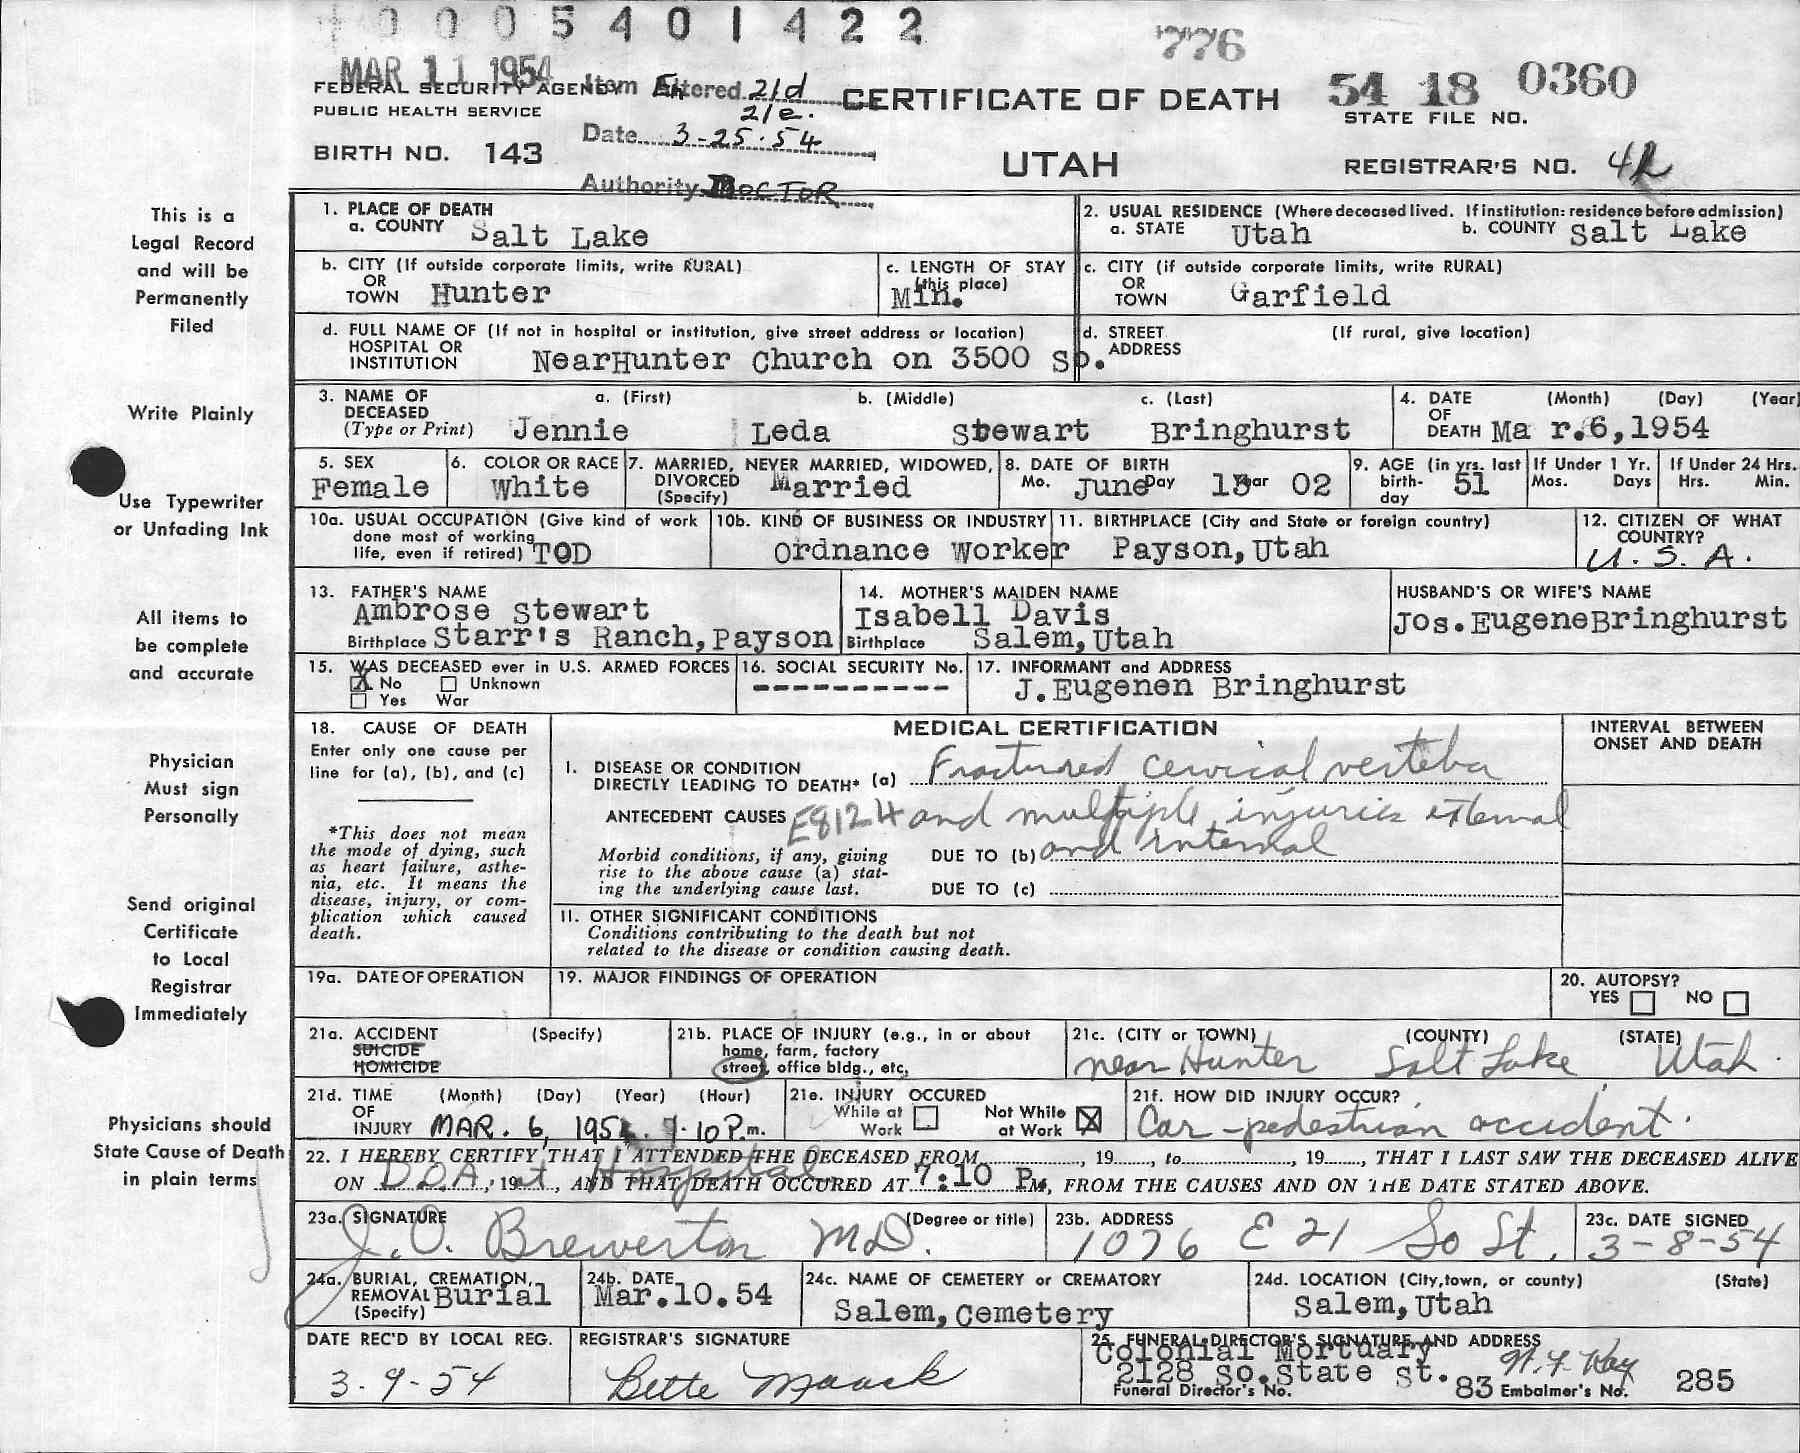 0005401422
776
MAR 11 1954
FEDERAL SECURITY AGENCY Item Entered 21d
PUBLIC HEALTH SERVICE 21e.
Date 3-25-54
BIRTH NO. 143
Authority DOCTOR
CERTIFICATE OF DEATH
UTAH
54 18 0360
STATE FILE NO.
REGISTRAR'S NO.
This is a
Legal Record
and will be
Permanently
Filed
Write Plainly
Use Typewriter
or Unfading Ink
All items to
be complete
and accurate
Physician
Must sign
Personally
Send original
Certificate
to Local
Registrar
Immediately
Physicians should
State Cause of Death
in plain terms
1. PLACE OF DEATH
a. COUNTY Salt Lake
2. USUAL RESIDENCE (Where deceased lived. If institution: residence before admission)
a. STATE Utah b. COUNTY Salt Lake
b. CITY (If outside corporate limits, write RURAL)
OR
TOWN Hunter
c. LENGTH OF STAY
(this place)
Min.
c. CITY (if outside corporate limits, write RURAL)
OR
TOWN Garfield
d. FULL NAME OF (If not in hospital or institution, give street address or location)
HOSPITAL OR
INSTITUTION NearHunter Church on 3500 So.
d. STREET (If rural, give location)
ADDRESS
3. NAME OF a. (First) b. (Middle) c. (Last)
DECEASED
(Type or Print) Jennie Leda Stewart Bringhurst
4. DATE (Month) (Day) (Year)
OF
DEATH Mar.6,1954
5. SEX
Female
6. COLOR OR RACE
White
7. MARRIED, NEVER MARRIED, WIDOWED,
DIVORCED
(Specify) Married
8. DATE OF BIRTH
Mo. June Day 13 Year 02
9. AGE (in yrs. last
birth-
day 51
If Under 1 Yr.
Mos. Days
If Under 24 Hrs.
Hrs. Min.
10a. USUAL OCCUPATION (Give kind of work
done most of working
life, even if retired) TOD
10b. KIND OF BUSINESS OR INDUSTRY
Ordnance Worker
11. BIRTHPLACE (City and State or foreign country)
Payson, Utah
12. CITIZEN OF WHAT
COUNTRY?
U.S.A.
13. FATHER'S NAME
Ambrose Stewart
Birthplace Starr's Ranch, Payson
14. MOTHER'S MAIDEN NAME
Isabell Davis
Birthplace Salem, Utah
HUSBAND'S OR WIFE'S NAME
Jos.EugeneBringhurst
15. WAS DECEASED ever in U.S. ARMED FORCES
X No Unknown
Yes War
16. SOCIAL SECURITY No.
----------
17. INFORMANT and ADDRESS
J.Eugenen Bringhurst
18. CAUSE OF DEATH
Enter only one cause per
line for (a), (b), and (c)
*This does not mean
the mode of dying, such
as heart failure, asthe-
nia, etc. It means the
disease, injury, or com-
plication which caused
death.
MEDICAL CERTIFICATION
I. DISEASE OR CONDITION
DIRECTLY LEADING TO DEATH* (a) Fractured cervical vertebra
ANTECEDENT CAUSES E8124 and multiple injuries external
Morbid conditions, if any, giving DUE TO (b) and internal
rise to the above cause (a) stat-
ing the underlying cause last. DUE TO (c)
II. OTHER SIGNIFICANT CONDITIONS
Conditions contributing to the death but not
related to the disease or condition causing death.
INTERVAL BETWEEN
ONSET AND DEATH
19a. DATE OF OPERATION
19. MAJOR FINDINGS OF OPERATION
20. AUTOPSY?
YES NO
21a. ACCIDENT (Specify)
SUICIDE
HOMICIDE
21b. PLACE OF INJURY (e.g., in or about
home, farm, factory
street, office bldg., etc,
21c. (CITY or TOWN) (COUNTY) (STATE)
near Hunter Salt Lake Utah.
21d. TIME (Month) (Day) (Year) (Hour)
OF
INJURY MAR. 6, 1954 7:10 P.m.
21e. INJURY OCCURED
While at Not While
Work at Work X
21f. HOW DID INJURY OCCUR?
Car-pedestrian accident.
22. I HEREBY CERTIFY THAT I ATTENDED THE DECEASED FROM , 19 , to , 19 , THAT I LAST SAW THE DECEASED ALIVE
ON D.O.A. , 19 at Hospital, AND THAT DEATH OCCURED AT 7:10 P.M, FROM THE CAUSES AND ON THE DATE STATED ABOVE.
23a. SIGNATURE (Degree or title)
J.O. Brewerton M.D.
23b. ADDRESS
1076 E 21 So St.
23c. DATE SIGNED
3-8-54
24a. BURIAL, CREMATION,
REMOVAL Burial
(Specify)
24b. DATE
Mar.10.54
24c. NAME OF CEMETERY or CREMATORY
Salem, Cemetery
24d. LOCATION (City, town, or county) (State)
Salem, Utah
DATE REC'D BY LOCAL REG.
3-9-54
REGISTRAR'S SIGNATURE
Bette Maack
25. FUNERAL DIRECTOR'S SIGNATURE AND ADDRESS
Colonial Mortuary
2128 So.State St.
Funeral Director's No. 83 Embalmer's No. 285